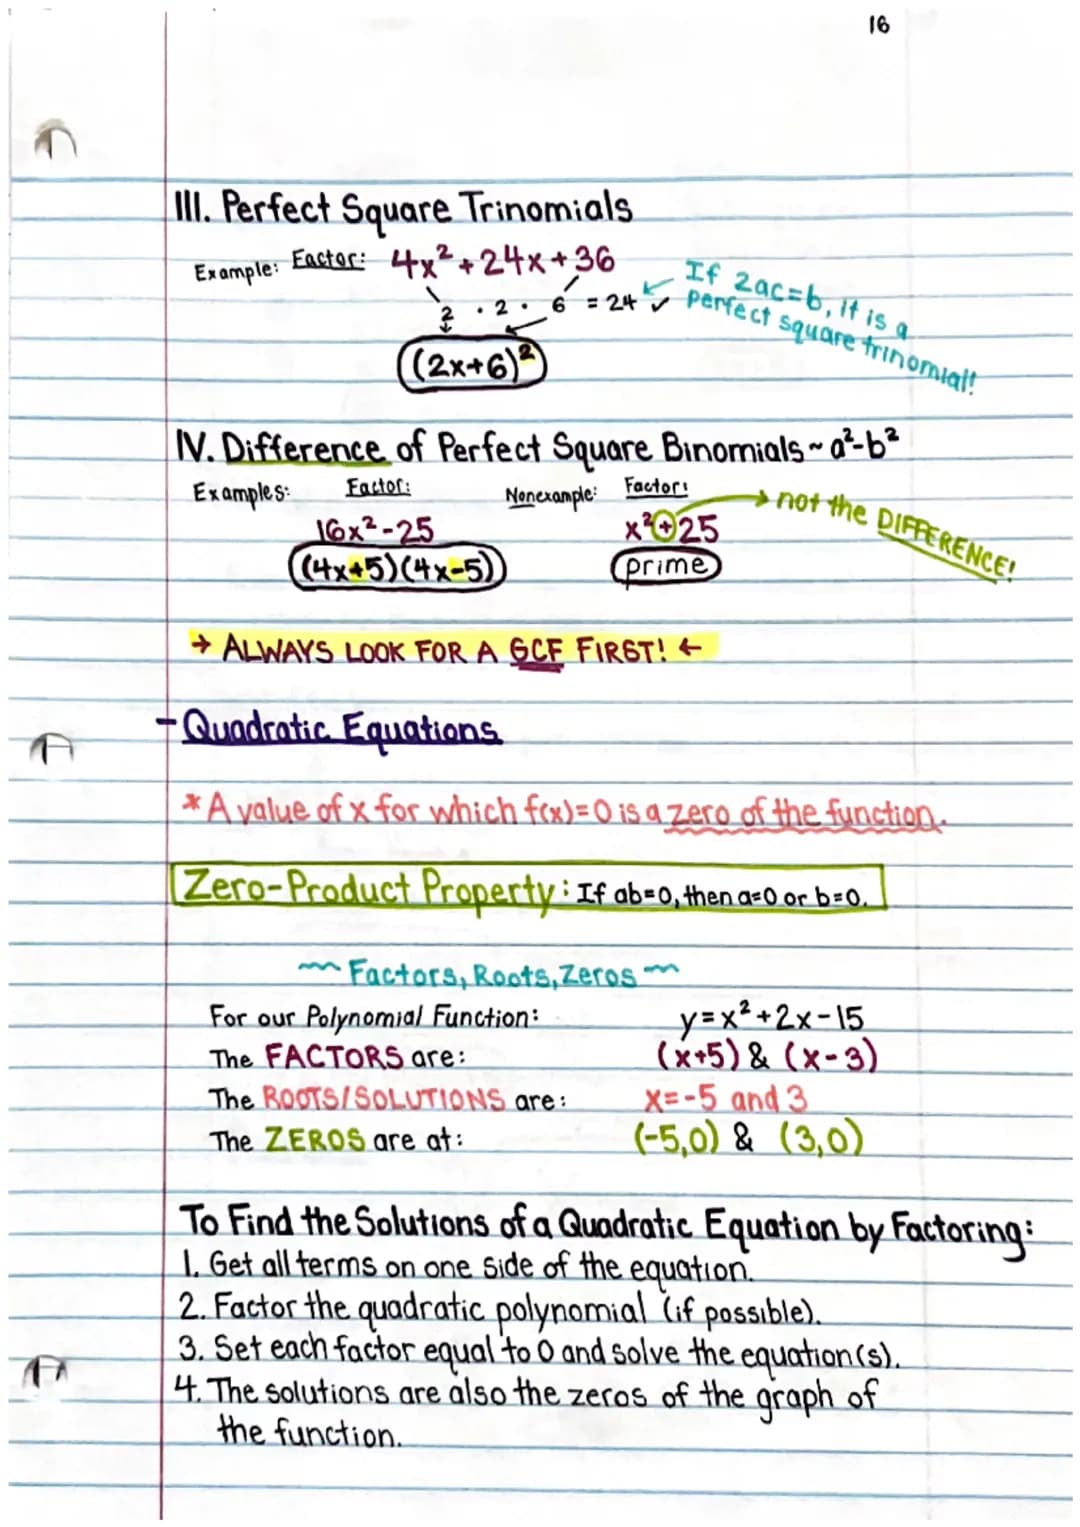 16
III. Perfect Square Trinomials
Example: Factor: 4x²+24x+36
2 · 2 · 6 = 24 ✓
If 2ac=b, it is a
perfect square trinomial!
(2x+6)²
IV. Difference of Perfect Square Binomials ~ a²-b²
Examples: Factor: Nonexample: Factor:
not the DIFFERENCE!
16x²-25 x²+25
(4x+5)(4x-5) prime
→ ALWAYS LOOK FOR A GCF FIRST! ←
- Quadratic Equations
* A value of x for which f(x)=0 is a zero of the function.
Zero-Product Property: If ab=0, then a=0 or b=0.
~ Factors, Roots, Zeros ~
For our Polynomial Function: y=x²+2x-15
The FACTORS are: (x+5) & (x-3)
The ROOTS/SOLUTIONS are: x=-5 and 3
The ZEROS are at: (-5,0) & (3,0)
To Find the Solutions of a Quadratic Equation by Factoring:
1. Get all terms on one side of the equation.
2. Factor the quadratic polynomial (if possible).
3. Set each factor equal to 0 and solve the equation(s).
4. The solutions are also the zeros of the graph of
the function.